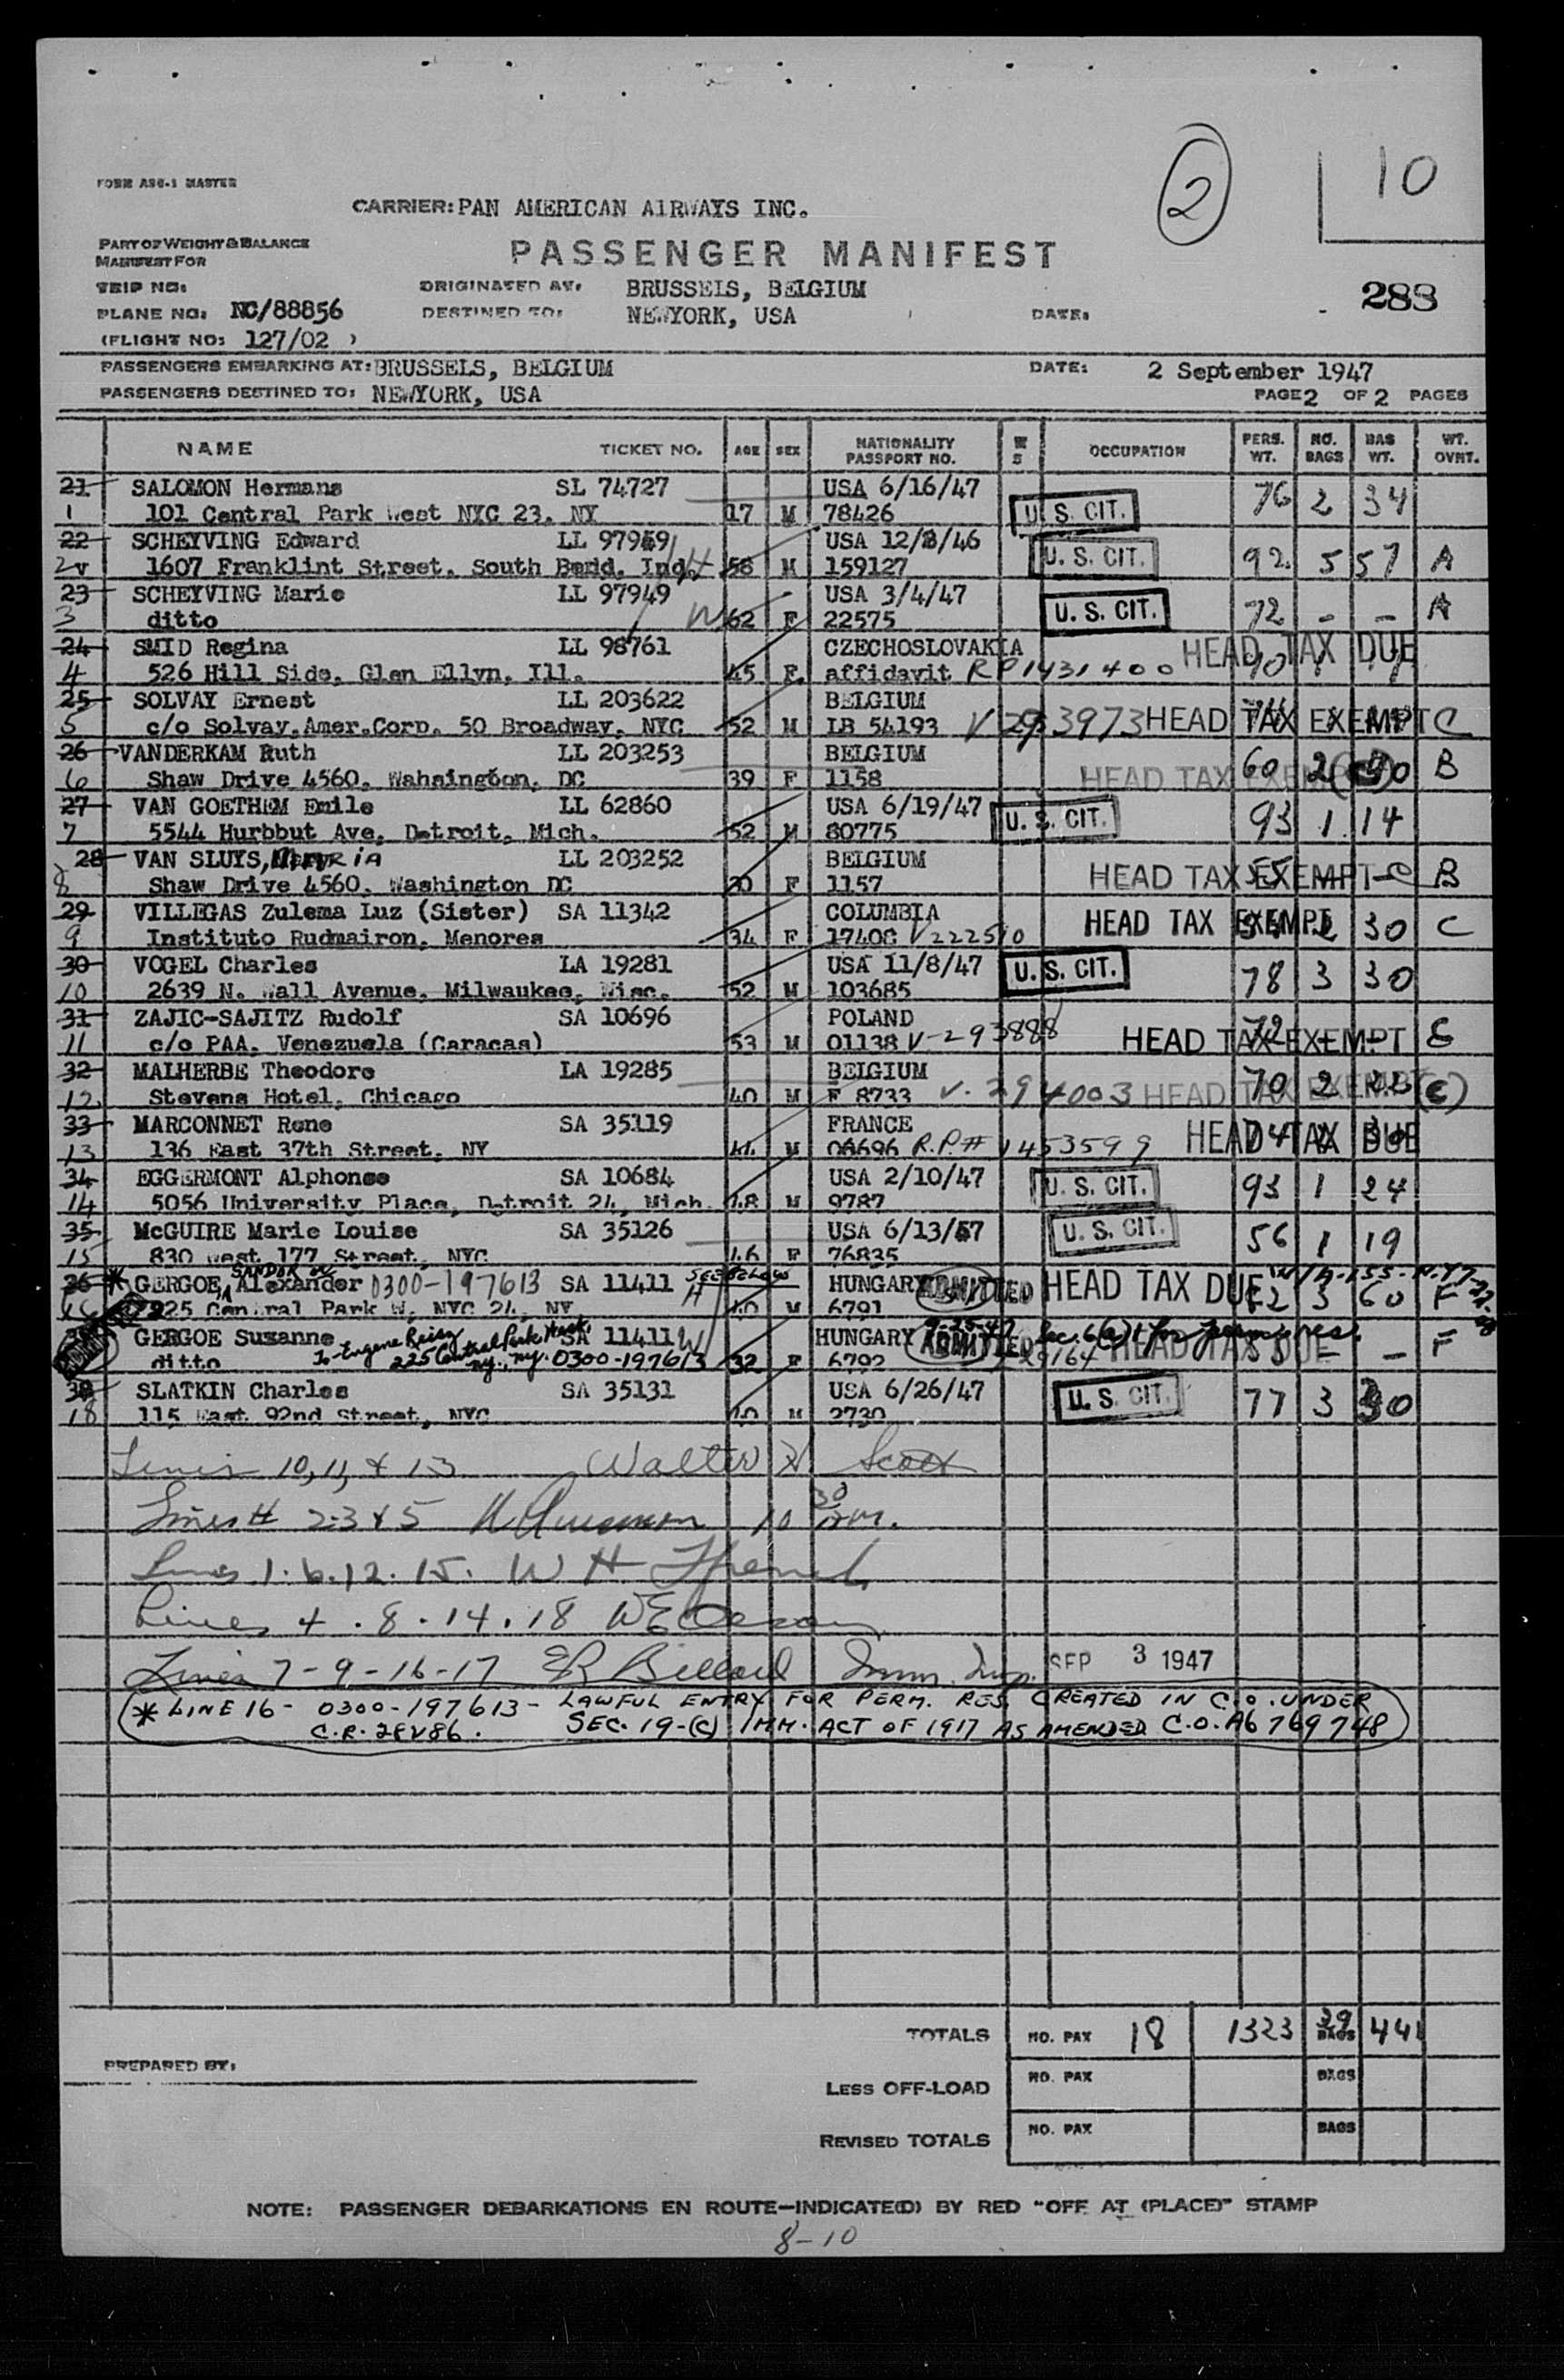 2
10
FORM A96-1 MASTER
CARRIER: PAN AMERICAN AIRWAYS INC.
PART OF WEIGHT & BALANCE
MANIFEST FOR
PASSENGER MANIFEST
TRIP NO:
ORIGINATED AT: BRUSSELS, BELGIUM
288
PLANE NO: NC/88856
DESTINED TO: NEWYORK, USA
DATE:
(FLIGHT NO: 127/02 )
PASSENGERS EMBARKING AT: BRUSSELS, BELGIUM DATE: 2 September 1947
PASSENGERS DESTINED TO: NEWYORK, USA PAGE 2 OF 2 PAGES
NAME TICKET NO. AGE SEX NATIONALITY PASSPORT NO. OCCUPATION PERS. WT. NO. BAGS BAG WT. WT. OVNT.
21 SALOMON Hermans SL 74727 USA 6/16/47 76 2 34
1 101 Central Park West NYC 23. NY 17 M 78426 U. S. CIT.
22 SCHEYVING Edward LL 97949 USA 12/3/46
2 1607 Franklint Street. South Bend. Ind. 58 M 159127 U. S. CIT. 92 5 57 A
23 SCHEYVING Marie LL 97949 USA 3/4/47
3 ditto W 62 F 22575 U. S. CIT. 72 - - A
24 SMID Regina LL 98761 CZECHOSLOVAKIA HEAD TAX DUE
4 526 Hill Side. Glen Ellyn. Ill. 45 F. affidavit RP1431400
25 SOLVAY Ernest LL 203622 BELGIUM
5 c/o Solvay.Amer.Corp. 50 Broadway. NYC 52 M LB 54193 V 293973 HEAD TAX EXEMPT C
26 VANDERKAM Ruth LL 203253 BELGIUM
6 Shaw Drive 4560. Wahsington. DC 39 F 1158 HEAD TAX EXEMPT 60 2 B
27 VAN GOETHEM Emile LL 62860 USA 6/19/47
7 5544 Hurbbut Ave. Detroit. Mich. 52 M 80775 U. S. CIT. 93 1 14
28 VAN SLUYS, MARIA LL 203252 BELGIUM
8 Shaw Drive 4560. Washington DC F 1157 HEAD TAX EXEMPT B
29 VILLEGAS Zulema Luz (Sister) SA 11342 COLUMBIA
9 Instituto Rudmairon. Menores 34 F 17408 V222510 HEAD TAX EXEMPT 30 C
30 VOGEL Charles LA 19281 USA 11/8/47
10 2639 N. Wall Avenue. Milwaukee. Wisc. 52 M 103685 U. S. CIT. 78 3 30
31 ZAJIC-SAJITZ Rudolf SA 10696 POLAND
11 c/o PAA. Venezuela (Caracas) 53 M 01138 V-293888 HEAD TAX EXEMPT
32 MALHERBE Theodore LA 19285 BELGIUM
12 Stevens Hotel. Chicago 40 M F 8733 V. 294003 HEAD TAX EXEMPT 70 2 (C)
33 MARCONNET Rene SA 35119 FRANCE
13 136 East 37th Street. NY 44 M 08696 R.P.# 1453599 HEAD TAX DUE
34 EGGERMONT Alphonse SA 10684 USA 2/10/47
14 5056 University Place, Detroit 24, Mich. 48 M 9787 U. S. CIT. 93 1 24
35 McGUIRE Marie Louise SA 35126 USA 6/13/57
15 830 West 177 Street. NYC 46 F 76835 U. S. CIT. 56 1 19
36 * GERGOE, SANDOR or Alexander 0300-197613 SA 11411 SEE BELOW HUNGARY ADMITTED HEAD TAX DUE
16 225 Central Park W. NYC 24, NY H 40 M 6791 3 60 F
GERGOE Suzanne SA 11411 W HUNGARY ADMITTED 9-25-47 Sec. 6(a) for perm. res. F
ditto To Eugene Reisz 225 Central Park West ny. ny. 0300-197613 32 F 6792 HEAD TAX DUE
38 SLATKIN Charles SA 35131 USA 6/26/47
18 115 East 92nd Street, NYC 40 M 2730 U. S. CIT. 77 3 30
Lines 10, 11, & 13 Walter Scott
Lines # 2-3 & 5 10 30 AM.
Lines 1. 6. 12. 15. W H
Lines 4 . 8 . 14 . 18 WE
Lines 7-9-16-17 ER Billard Imm. Insp. SEP 3 1947
* LINE 16 - 0300-197613 - LAWFUL ENTRY FOR PERM. RES. CREATED IN C.O. UNDER
C.R. 28V86. SEC. 19-(C) IMM. ACT OF 1917 AS AMENDED C.O. A6 769748
TOTALS NO. PAX 18 1323 39 BAGS 441
PREPARED BY:
LESS OFF-LOAD NO. PAX BAGS
REVISED TOTALS NO. PAX BAGS
NOTE: PASSENGER DEBARKATIONS EN ROUTE—INDICATE(D) BY RED "OFF AT (PLACE)" STAMP
8-10